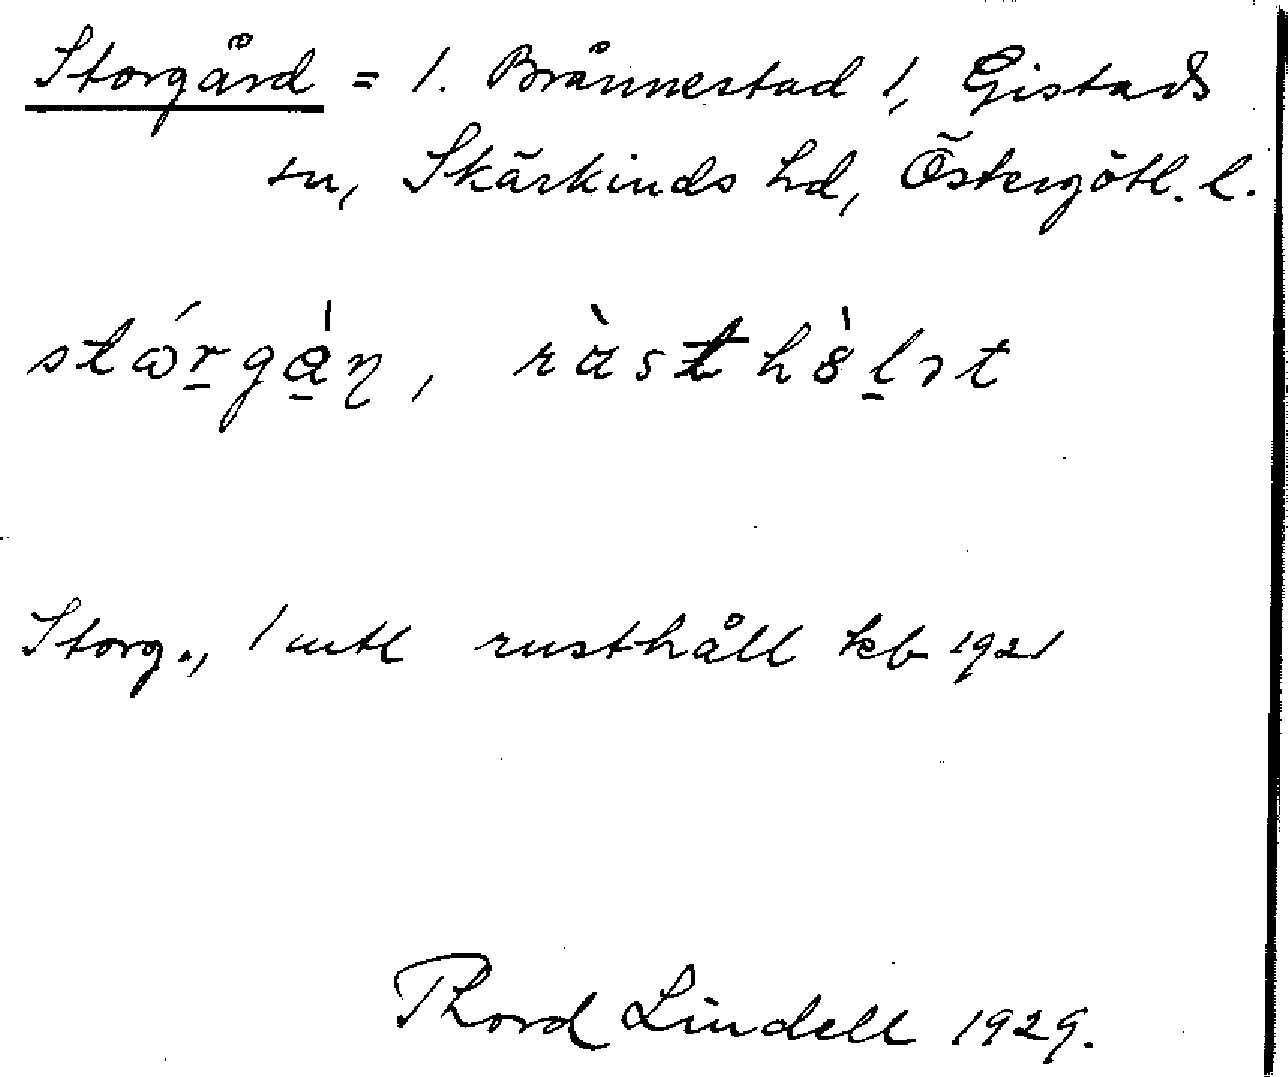 Storgård = 1. Brånnestad 1, Gistads
sn, Skärkinds hd, Östergötl. l.
Storg., 1 mtl rusthåll kb 1921
Thord Lindell 1929.